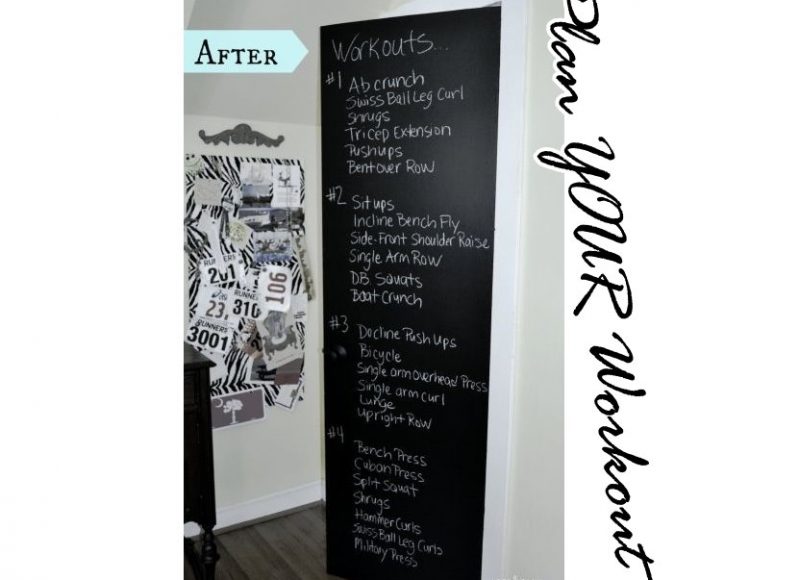 AFTER
Workouts...
#1 Ab crunch
Swiss Ball Leg Curl
Shrugs
Tricep Extension
Pushups
Bentover Row
#2 Situps
Incline Bench Fly
Side-Front Shoulder Raise
Single Arm Row
D.B. Squats
Boat Crunch
#3 Decline Push Ups
Bicycle
Single arm overhead Press
Single arm curl
Lunge
Upright Row
#4 Bench Press
Cuban Press
Split Squat
Shrugs
Hammer Curls
Swiss Ball Leg Curls
Military Press
RUNNERS
201
106
23
RUNNERS
310
RUNNERS
3001
Plan YOUR Workout